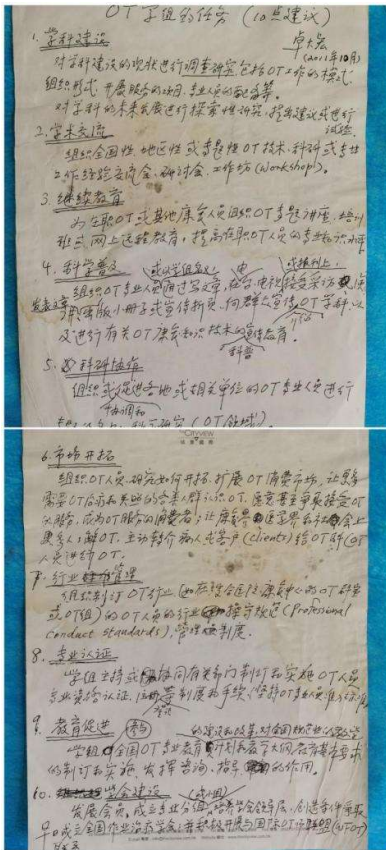 OT学组的任务（10点建议）
卓大宏
(2011年10月)
1. 学科建设
对学科建设的现状进行调查研究包括OT工作的模式
组织形式、开展服务的项目、专业人员的配备等。
对学科的未来发展进行探索性研究，提出建议或进行
试验
2. 学术交流
组织全国性、地区性或专题性OT技术、科研或专业
工作经验交流会、研讨会、工作坊(workshop)。
3. 继续教育
为在职OT或其他康复人员组织OT专题讲座、培训
班或网上远程教育，提高在职OT人员的专业知识水平
4. 科学普及
或以学组名义 或报刊上
组织OT专业人员通过写文章、电台、电视接受采访
发表文章 出版小册子或宣传折页，向群众宣传OT学科，以
及进行有关OT康复知识技术的宣传教育。
科普
5. 科研协作
组织或促进各地或相关单位的OT专业人员进行
协调和
(OT领域)
Cityview
6. 市场开拓
组织OT人员研究如何开拓、扩展OT消费市场，让更多
需要OT治疗和 认识OT，愿意甚至争取接受OT
服务，成为OT服务的消费者；让康复界、医学界和社会上
更多人了解OT，主动转介病人或客户(clients)给OT师(OT
人员进行OT。
7. 行业管理
组织制订OT行业（如在综合医院康复中心的OT科室
或OT组）的OT人员的行业操守规范(Professional
conduct standards)，管理制度。
8. 专业认证
学组主持或协同有关部门制订和实施OT人员
专业资格认证、 制度和手续，坚持OT专业人员准入标准
9. 教育促进
参与 的建设和改革，对全国
学组 全国OT专业教育 计划和教学大纲 要求
的制订和实施，发挥咨询、指导 的作用。
10. 学会建设（或学组）
发展会员，成立专业分组，培养学会领导层，创造条件争取
早日成立全国作业治疗学会，并积极开展与国际OT联盟(WFOT)